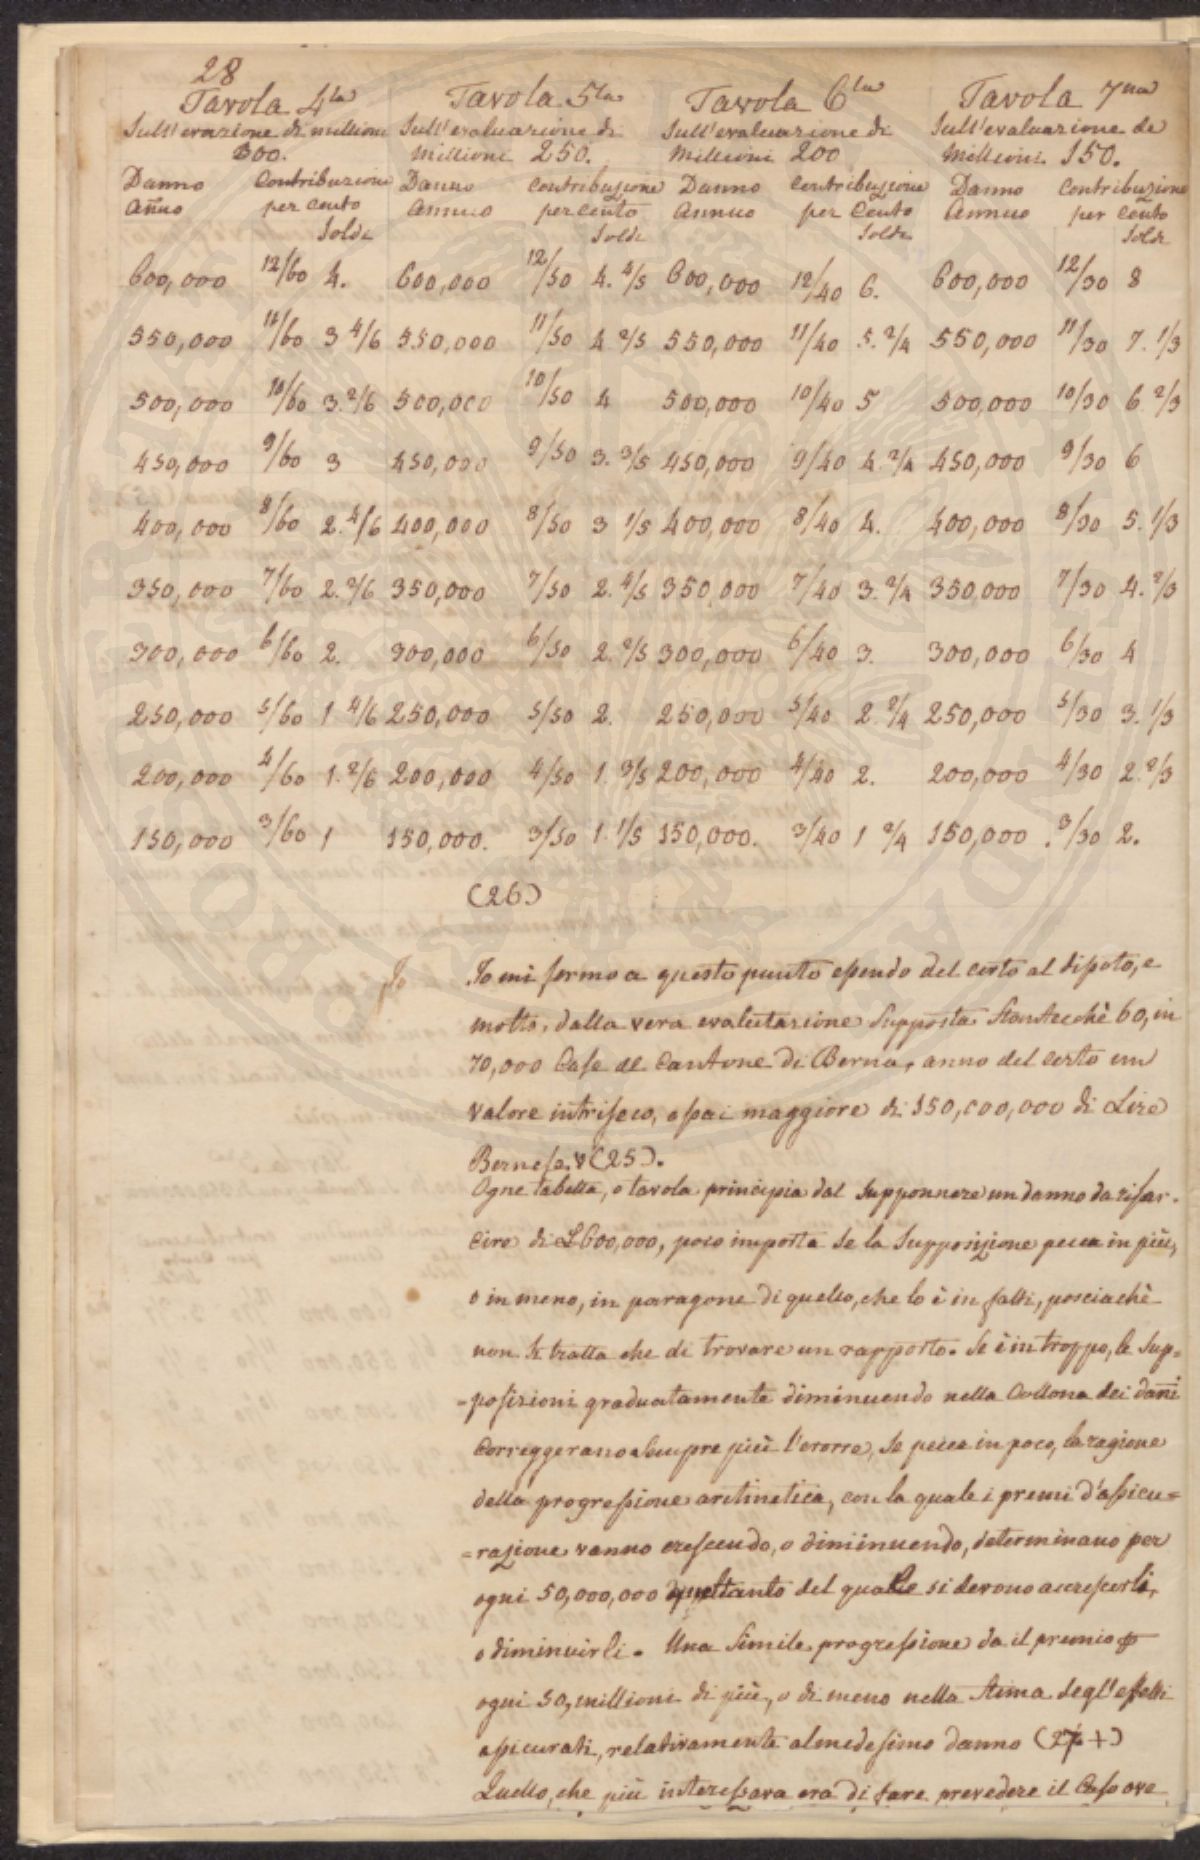 28
Tavola 4ta Tavola 5ta Tavola 6ta Tavola 7ma
Sull'evazione di millioni Sull'evaluazione di Sull'evaluazione di Sull'evaluazione de
300. Millioni 250. Millioni 200 Millioni 150.
Danno Contribuzione Danno Contribuzione Danno Contribuzione Danno Contribuzione
añuo per cento Annuo per cento Annuo per Cento Annuo per Cento
Soldi Soldi Soldi Soldi
600,000 12/60 4. 600,000 12/50 4. 4/5 600,000 12/40 6. 600,000 12/30 8
550,000 11/60 3 4/6 550,000 11/50 4 2/5 550,000 11/40 5. 2/4 550,000 11/30 7. 1/3
500,000 10/60 3. 2/6 500,000 10/50 4 500,000 10/40 5 500,000 10/30 6 2/3
450,000 9/60 3 450,000 9/50 3. 3/5 450,000 9/40 4. 2/4 450,000 9/30 6
400,000 8/60 2. 4/6 400,000 8/50 3 1/5 400,000 8/40 4. 400,000 8/30 5. 1/3
350,000 7/60 2. 2/6 350,000 7/50 2. 4/5 350,000 7/40 3. 2/4 350,000 7/30 4. 2/3
300,000 6/60 2. 300,000 6/50 2. 2/5 300,000 6/40 3. 300,000 6/30 4
250,000 5/60 1 4/6 250,000 5/50 2. 250,000 5/40 2. 2/4 250,000 5/30 3. 1/3
200,000 4/60 1. 2/6 200,000 4/50 1. 3/5 200,000 4/40 2. 200,000 4/30 2. 2/3
150,000 3/60 1 150,000. 3/50 1. 1/5 150,000. 3/40 1 2/4 150,000 . 3/30 2.
(26)
Io Io mi fermo a questo punto essendo del certo al disoto, e
molto, dalla vera evalutazione Supposta Stantecchè 60, in
70,000 Case del Cantone di Berna, anno del certo un
valore intriseco, assai maggiore di 150,000,000 di Lire
Bernese. (25).
Ogne tabella, o tavola principia dal Supponnere un danno da risar-
cire di L600,000, poco importa se la Supposizione pecca in più,
o in meno, in paragone di quello, che lo è in fatti, posciachè
non si tratta che di trovare un rapporto. Se è in troppo, le Sup=
=posizioni graduatamente diminuendo nella Collona dei dani
Correggerano Sempre più l'erorre, se pecca in poco, la ragione
della progressione aritmetica, con la quale i premi d'assicu=
=razione vanno crescendo, o diminuendo, determinano per
ogni 50,000,000 quel tanto del quale si devono accrescerli,
o diminuirli. Una Simile progressione da il premio p
ogni 50, millioni di più, o di meno nella Stima degl'effetti
assicurati, relativamente al medesimo danno (27 +)
Quello, che più interessava era di fare prevedere il Caso ove
PROPRIETÀ